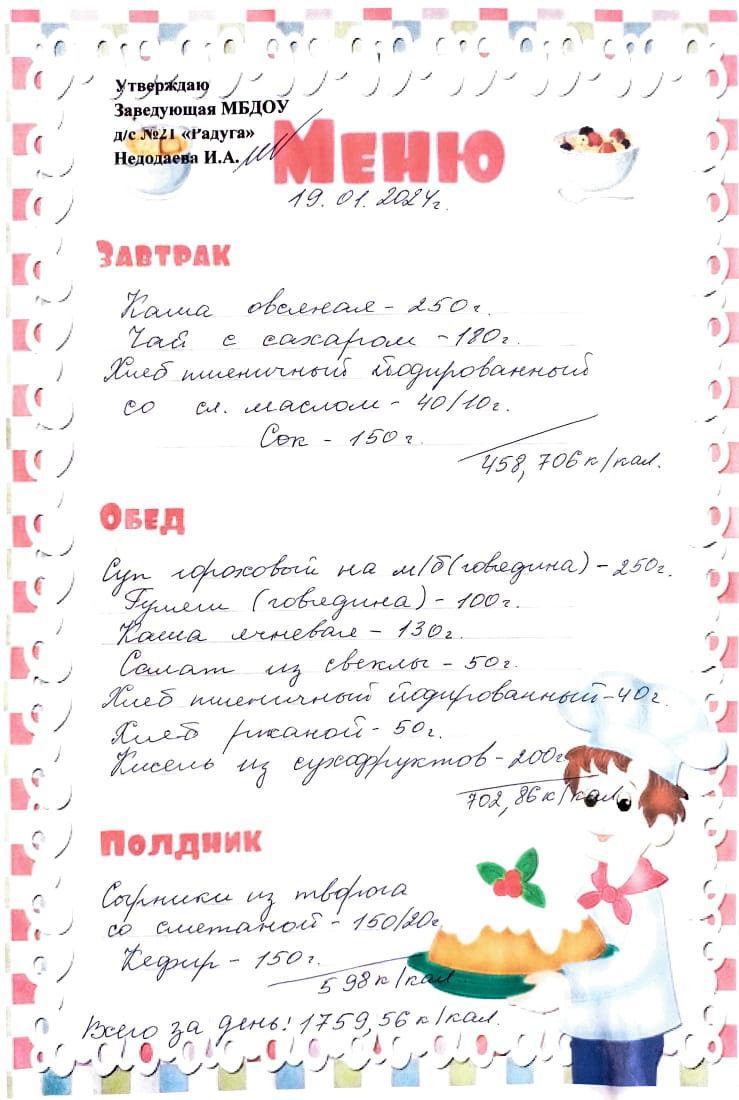 Утверждаю
Заведующая МБДОУ
д/с №21 «Радуга»
Недодаева И.А.
Меню
19.01.2024г.
Завтрак
Каша овсяная - 250г.
Чай с сахаром - 180г.
Хлеб пшеничный йодированный
со сл. маслом - 40/10г.
Сок - 150г.
458,706 к/кал.
Обед
Суп гороховый на м/б (говядина) - 250г.
Гуляш (говядина) - 100г.
Каша ячневая - 130г.
Салат из свеклы - 50г.
Хлеб пшеничный йодированный - 40г.
Хлеб ржаной - 50г.
Кисель из сухофруктов - 200г
702,86 к/кал
Полдник
Сырники из творога
со сметаной - 150/20г
Кефир - 150г.
598 к/кал
Всего за день: 1759,56 к/кал.